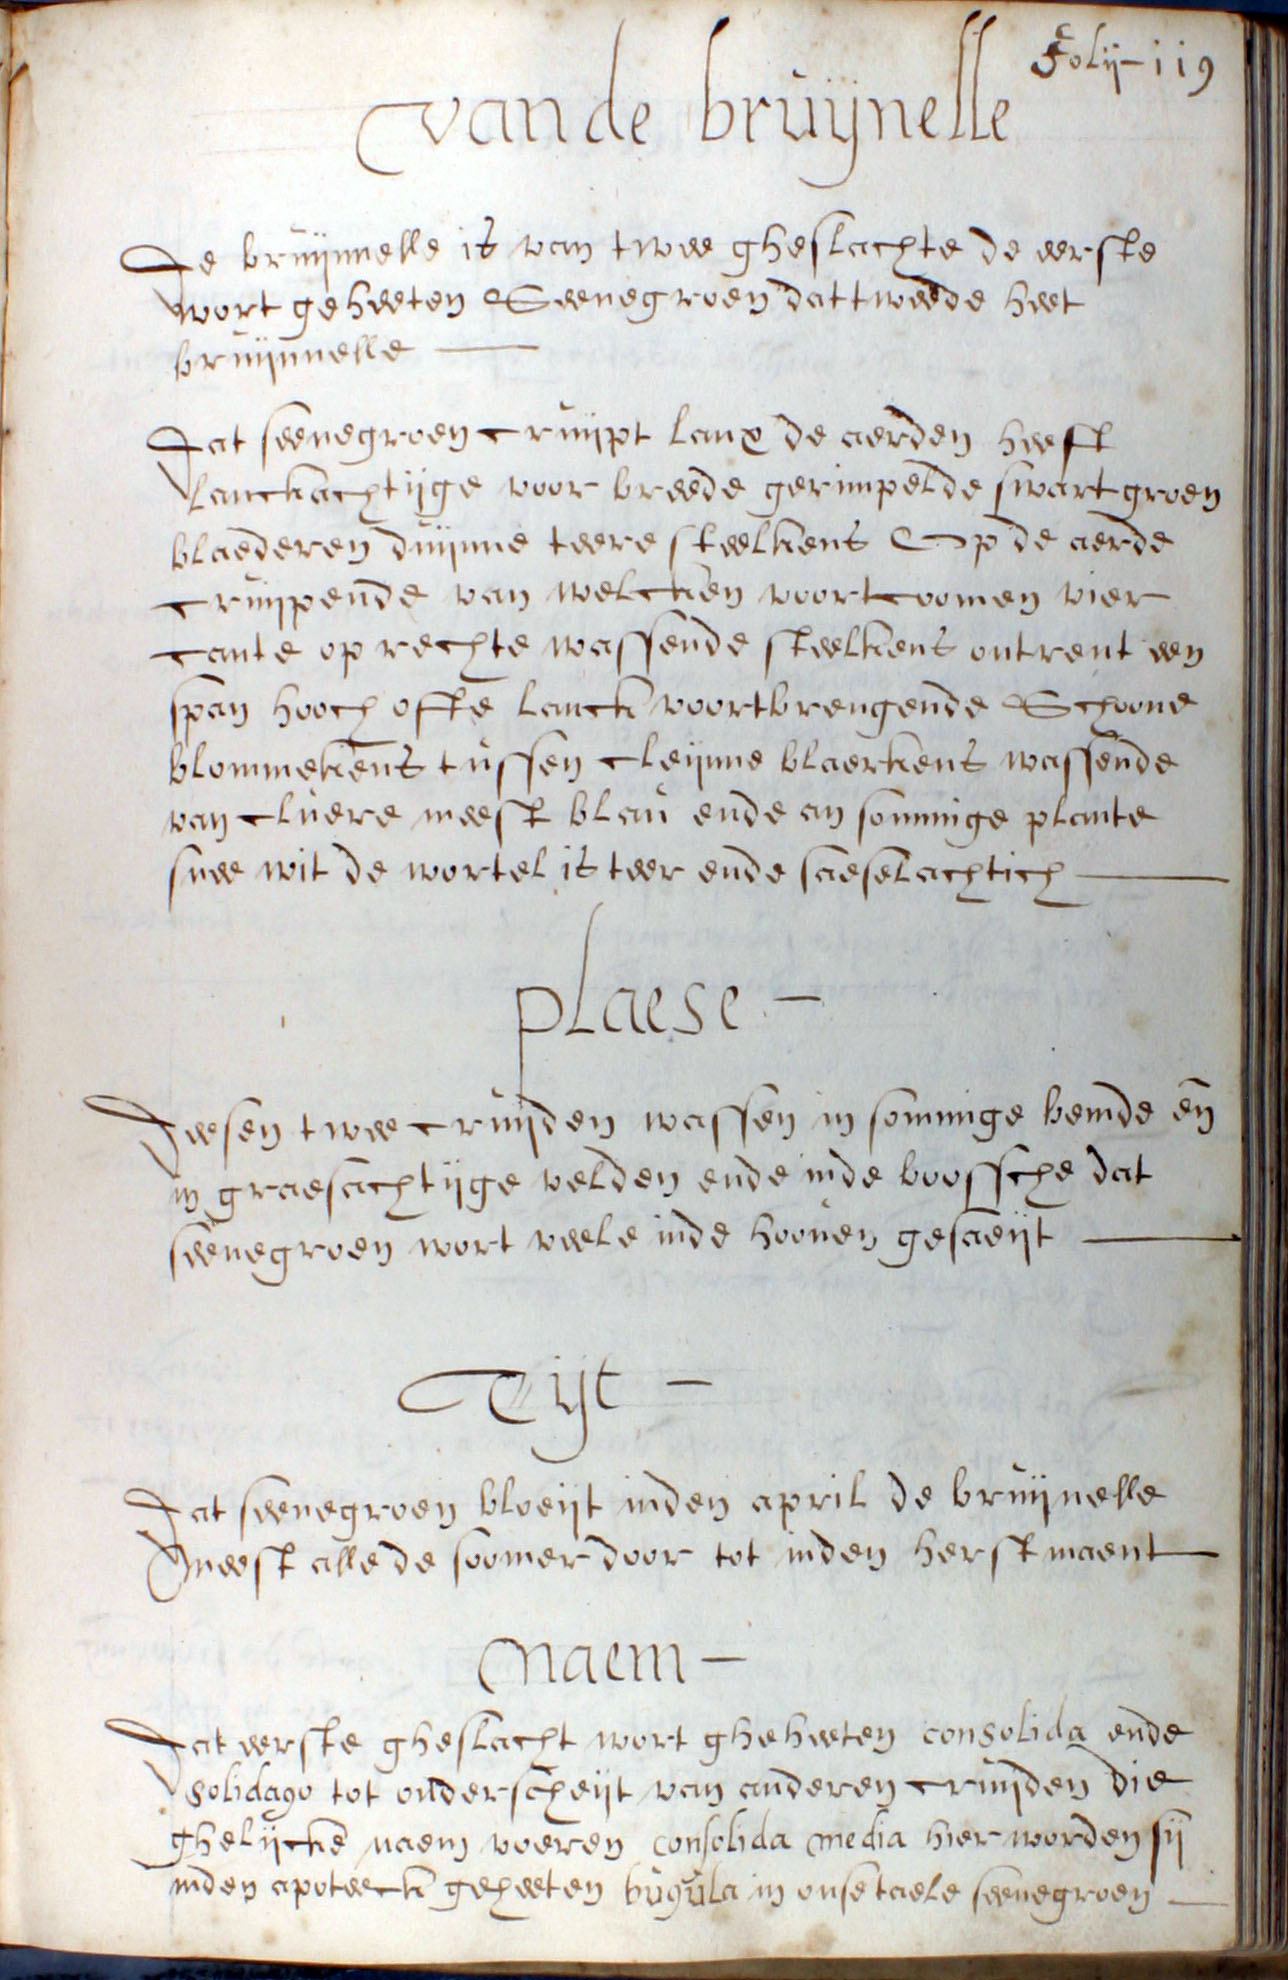 Folij-119
van de bruijnelle
De bruijnnelle is van twee gheslachte de eerste
wort geheeten Seenegroen dat tweede heet
bruijnnelle
Dat seenegroen cruijpt lanx de aerden heeft
lanckachtijge voor breede gerimpelde swart groen
blaederen duijnne teere steelkens Op de aerde
cruijpende van welcken voort coomen vier
cante op rechte wassende steelkens ontrent een
span hooch ofte lanck voortbrengende Schoone
blommekens tussen cleijnne blaerkens wassende
van cluere meest blau ende an somminge plante
snee wit de wortel is teer ende saeselachtich
plaese -
Deesen twee cruijden wassen in somminge bemde en̄
in graesachtijge velden ende inde boossche dat
seenegroen wort veele inde hooven gesaeijt
Tijt -
Dat seenegroen bloeijt inden april de bruijnelle
Meest alle de soomer door tot inden herstmaent
Naem -
Dat eerste gheslacht wort gheheeten consolida ende
solidago tot onderscheijt van anderen cruijden die
ghelijcke naem voeren consolida media hier worden sij
inden apoteeck geheeten bugula in onse taele seenegroen